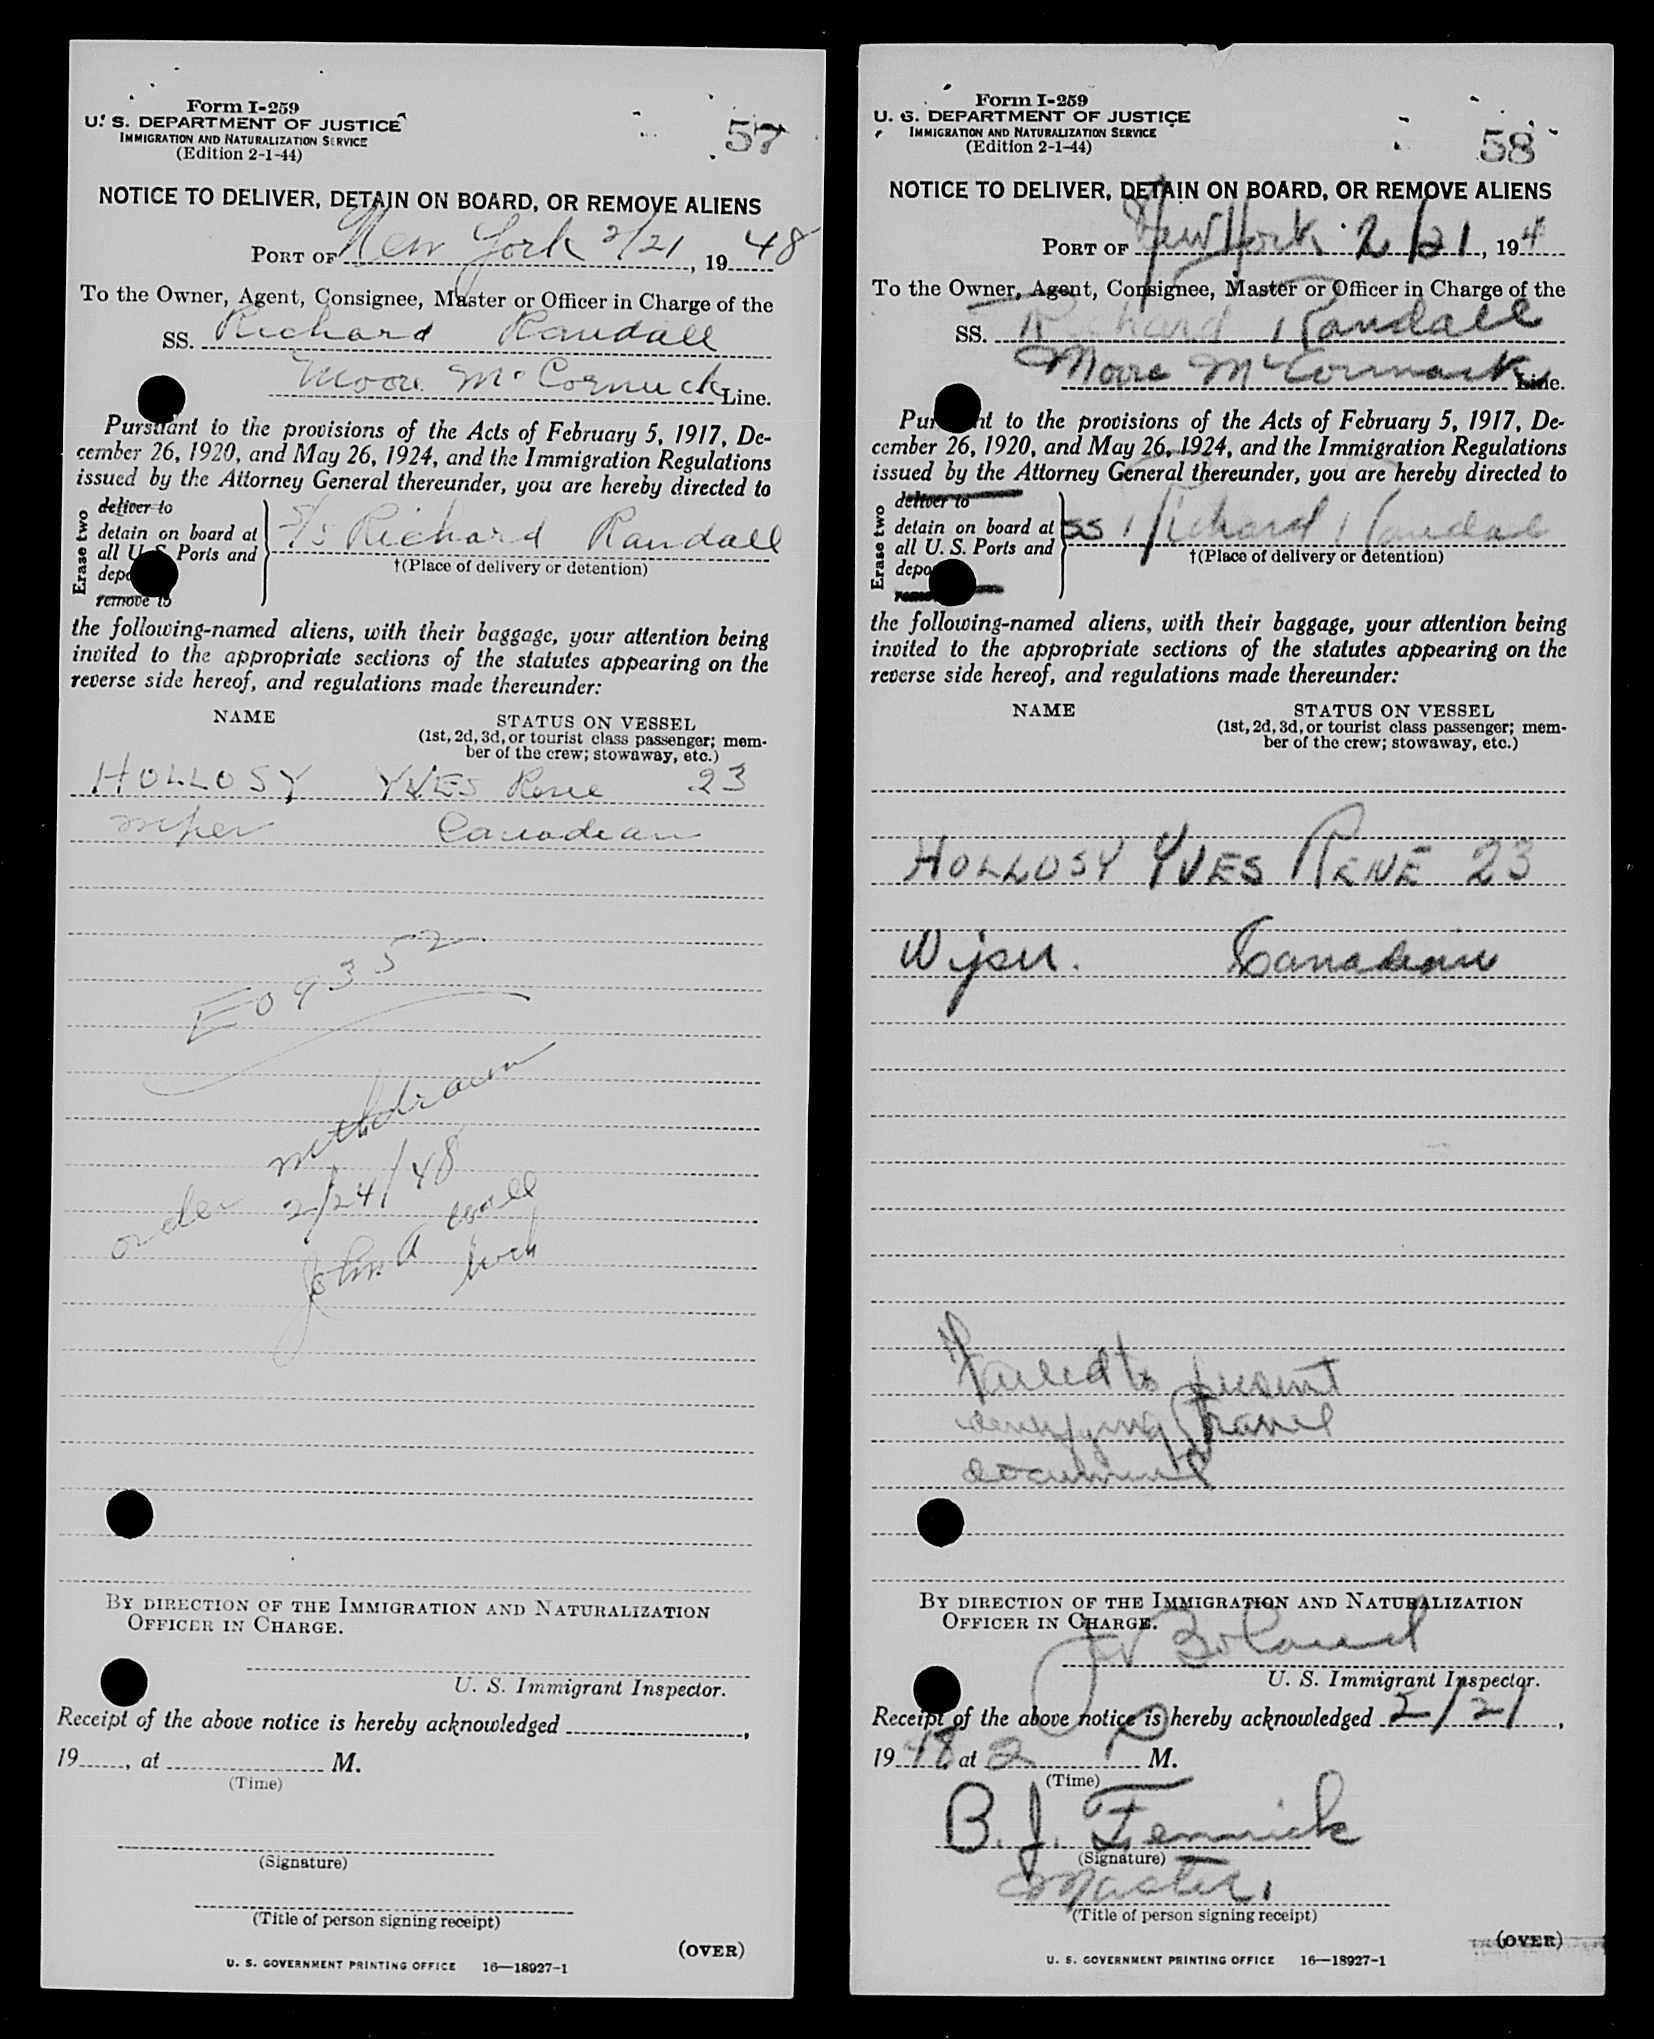 Form I-259
U. S. DEPARTMENT OF JUSTICE
IMMIGRATION AND NATURALIZATION SERVICE
(Edition 2-1-44)
57
NOTICE TO DELIVER, DETAIN ON BOARD, OR REMOVE ALIENS
PORT OF New York 2/21, 1948
To the Owner, Agent, Consignee, Master or Officer in Charge of the
SS. Richard Randall
Moore McCormack Line.
Pursuant to the provisions of the Acts of February 5, 1917, De-
cember 26, 1920, and May 26, 1924, and the Immigration Regulations
issued by the Attorney General thereunder, you are hereby directed to
Erase two
deliver to
detain on board at
all U. S. Ports and
depo
remove to
S/S Richard Randall
†(Place of delivery or detention)
the following-named aliens, with their baggage, your attention being
invited to the appropriate sections of the statutes appearing on the
reverse side hereof, and regulations made thereunder:
NAME
STATUS ON VESSEL
(1st, 2d, 3d, or tourist class passenger; mem-
ber of the crew; stowaway, etc.)
HOLLOSY YVES Rene 23
wiper Canadian
E09352
order withdrawn
2/24/48
John A
BY DIRECTION OF THE IMMIGRATION AND NATURALIZATION
OFFICER IN CHARGE.
U. S. Immigrant Inspector.
Receipt of the above notice is hereby acknowledged ,
19 , at M.
(Time)
(Signature)
(Title of person signing receipt)
(OVER)
U. S. GOVERNMENT PRINTING OFFICE 16—18927-1
Form I-259
U. S. DEPARTMENT OF JUSTICE
IMMIGRATION AND NATURALIZATION SERVICE
(Edition 2-1-44)
58
NOTICE TO DELIVER, DETAIN ON BOARD, OR REMOVE ALIENS
PORT OF New York 2/21, 194
To the Owner, Agent, Consignee, Master or Officer in Charge of the
SS. Richard Randall
Moore McCormack Line.
Pursuant to the provisions of the Acts of February 5, 1917, De-
cember 26, 1920, and May 26, 1924, and the Immigration Regulations
issued by the Attorney General thereunder, you are hereby directed to
Erase two
deliver to
detain on board at
all U. S. Ports and
depo
remove
SS Richard Randal
†(Place of delivery or detention)
the following-named aliens, with their baggage, your attention being
invited to the appropriate sections of the statutes appearing on the
reverse side hereof, and regulations made thereunder:
NAME
STATUS ON VESSEL
(1st, 2d, 3d, or tourist class passenger; mem-
ber of the crew; stowaway, etc.)
HOLLOSY YVES RENE 23
Wiper. Canadian
Failed to present
travel
document
BY DIRECTION OF THE IMMIGRATION AND NATURALIZATION
OFFICER IN CHARGE.
J V Boland
U. S. Immigrant Inspector.
Receipt of the above notice is hereby acknowledged 2/21,
1948 at 2 P M.
(Time)
B. J. Fennick
(Signature)
Master
(Title of person signing receipt)
(OVER)
U. S. GOVERNMENT PRINTING OFFICE 16—18927-1